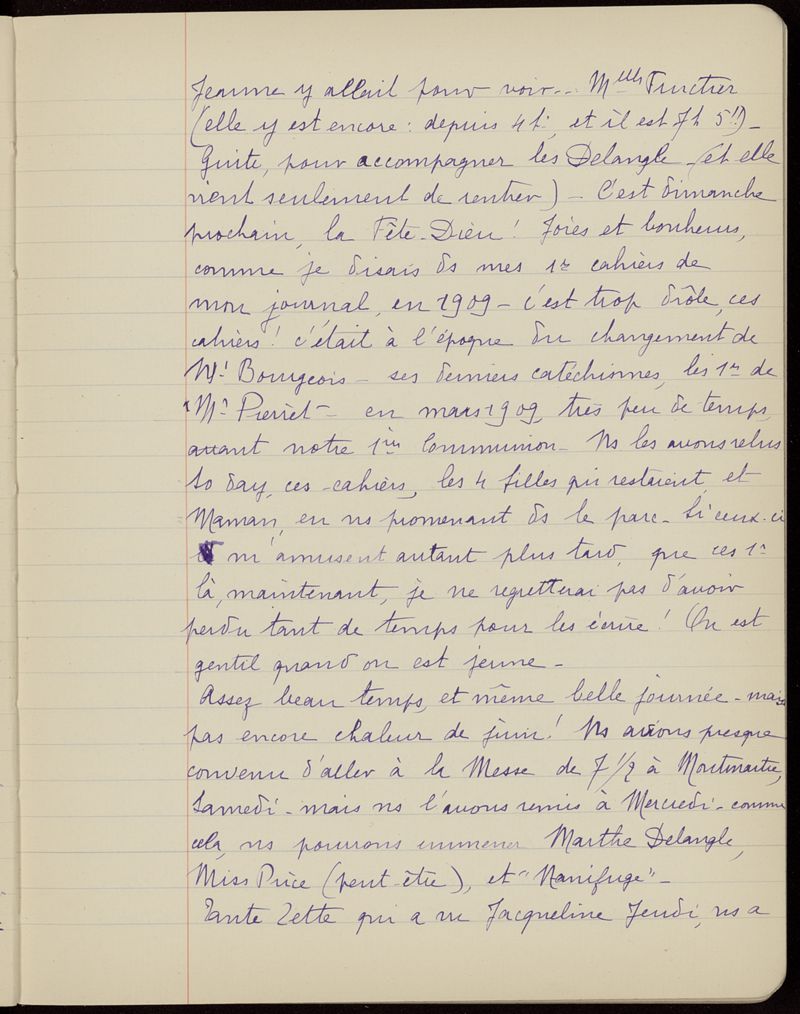 Jeanne y allait pour voir... Melle Tinctier
(elle y est encore : depuis 4h, et il est 7h 5 !!) -
Guite, pour accompagner les Delangle (et elle
vient seulement de rentrer) - C'est dimanche
prochain, la Fête-Dieu ! Joies et bonheurs,
comme je disais ds mes 1rs cahiers de
mon journal, en 1909 - c'est trop drôle, ces
cahiers ! c'était à l'époque du changement de
Mr Bourgeois - ses derniers catéchismes, les 1rs de
Mr Pierret - en mars 1909, très peu de temps
avant notre 1ère Communion - Ns les avons relus
to day, ces cahiers, les 4 filles qui restaient, et
Maman, en ns promenant ds le parc - Si ceux-ci
m'amusent autant plus tard, que ces 1rs
là, maintenant, je ne regretterai pas d'avoir
perdu tant de temps pour les écrire ! On est
gentil quand on est jeune -
Assez beau temps, et même belle journée - mais
pas encore chaleur de juin ! Ns avions presque
convenu d'aller à la Messe de 7 1/2 à Montmartre,
Samedi - mais ns l'avons remis à Mercredi - comme
cela, ns pourrons emmener Marthe Delangle,
Miss Price (peut-être), et "Nanifuge" -
Tante Zette qui a vu Jacqueline Jeudi, ns a